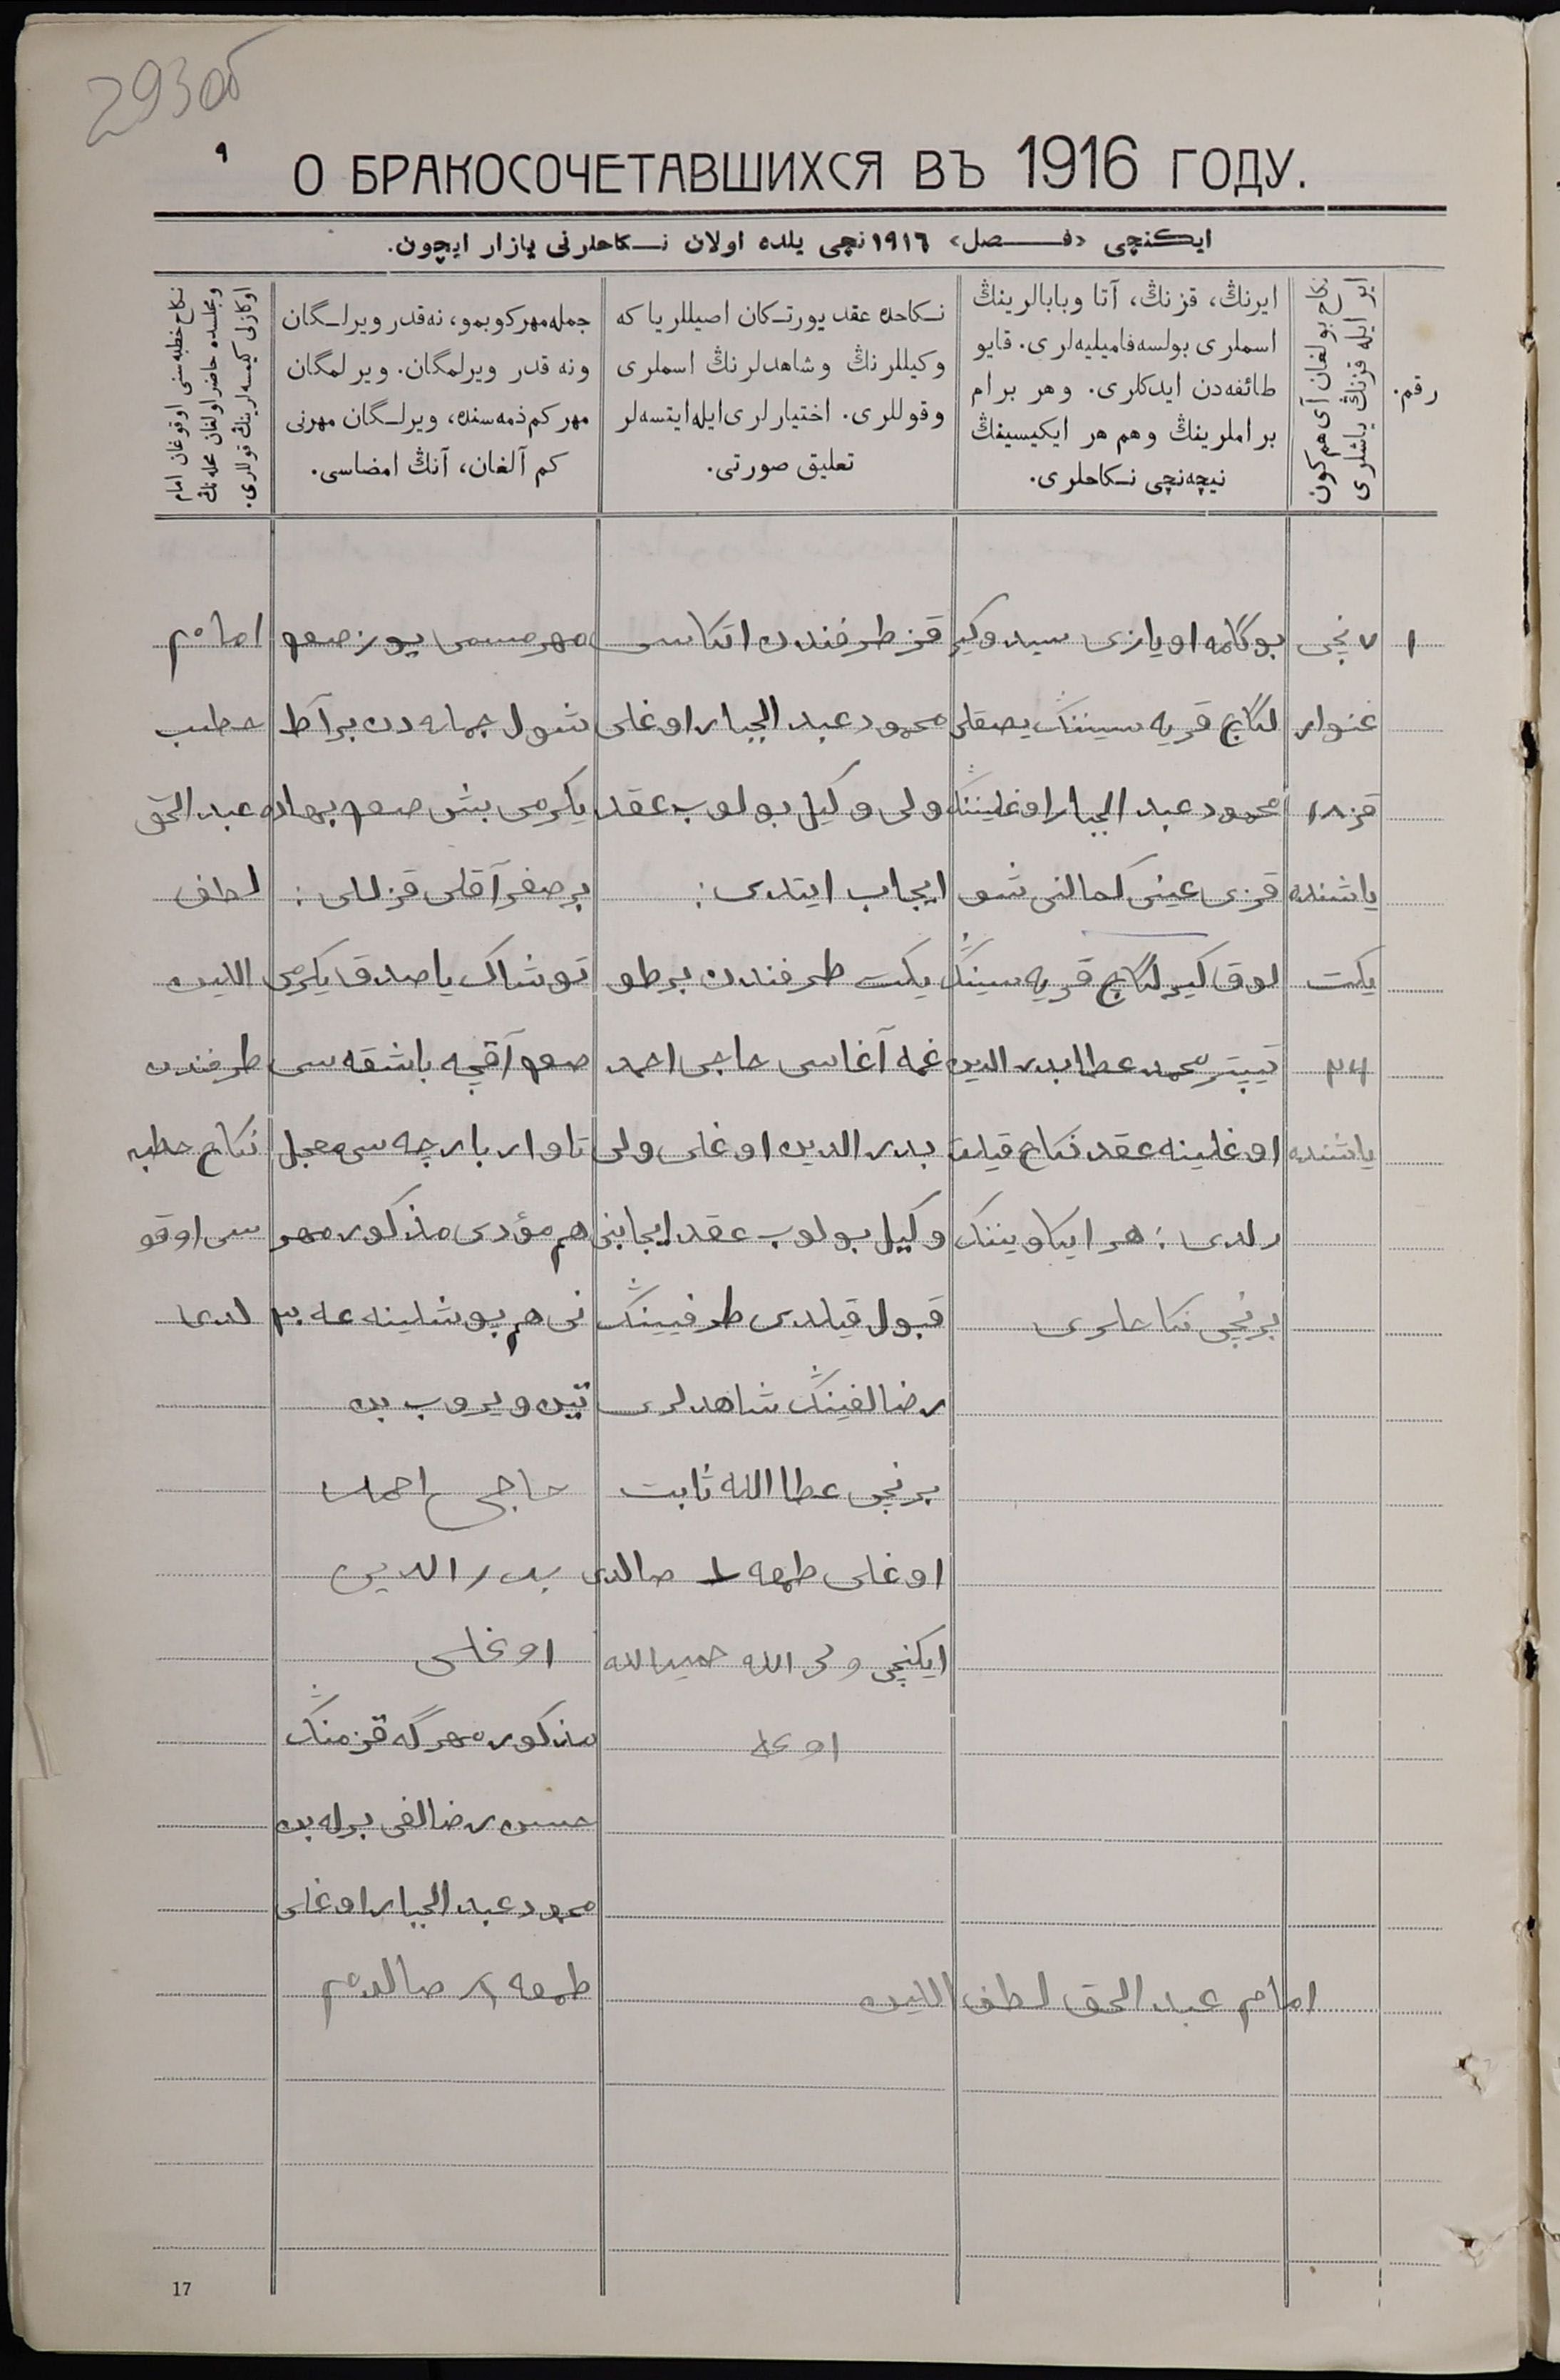 293 об
٩
О БРАКОСОЧЕТАВШИХСЯ ВЪ 1916 ГОДУ.
ایکنچی «فصل» ١٩١٦ نچی یلده اولان نکاحلرنی یازار ایچون.
رقم.
نکاح بولغان آی هم کون
ایر ایله قزنڭ یاشلری
ایرنڭ، قزنڭ، آتا وبابالرینڭ
اسملری بولسه فامیلیه‌لری. قایو
طائفه‌دن ایدکلری. وهر برام
براملرینڭ وهم هر ایکیسینڭ
نیچه‌نچی نکاحلری.
نکاحده عقد یورتکان اصیللر یا که
وکیللرنڭ وشاهدلرنڭ اسملری
وقوللری. اختیارلری ایله ایتسه‌لر
تعلیق صورتی.
جمله مهر کوبمو، نه‌قدر ویرلگان
ونه قدر ویرلمگان. ویرلمگان
مهر کم ذمه‌سنده، ویرلگان مهرنی
کم آلغان، آنڭ امضاسی.
نکاح خطبه‌سنی اوقوغان امام
ومجلسده حاضر اولغان محله‌نڭ
اوکازلی کیمسه‌لرینڭ قوللری.
١
٧ نچی
غنوار
قز ١٨
یاشنده
یکت
٣٤
یاشنده
بوگلمه اویازی
قریه سیننڭ
محمود عبد الجبار اوغلیننڭ
قزی
قریه سینڭ
تیپتر محمد عطا بدر الدین
اوغلینه عقد نکاح قیلن
رلدی : هر ایکاویننڭ
برنچی نکاحلری
قز طرفندن اتکاسی
محمود عبد الجبار اوغلی
ولی وکیل بولوب عقد
ایجاب ایتدی :
یکت طرفندن بر طو
غمه آغاسی حاجی احمد
بدر الدین اوغلی ولی
وکیل بولوب عقد ایجابنی
قبول قیلدی طرفیینڭ
رضالغینڭ شاهدلری
برنچی عطا الله ثابت
اوغلی طمعه صالدی
ایکنچی ولی الله حمید الله
اوغلی
مهر مسمی یوز صوم
شول جمله دن بر آط
یکرمی بش صوم بهاده
بر صفر آقلی قزللی :
توشاک یاصدق یکرمی
صوم آقچه باشقه سی
تاوار بارچه سی معجل
هم مؤدی مذکور مهر
ویروب بن
حاجی احمد
بدر الدین
اوغلی
مذکور مهرگه قزمنڭ
حسن رضالغی برله بن
محمود عبد الجبار اوغلی
طمعه صالدم
امام
خطیب
عبد الحق
لطف
الدین
طرفندن
نکاح خطبه
سی اوقو
لدی
امام عبد الحق لطف الدین
17